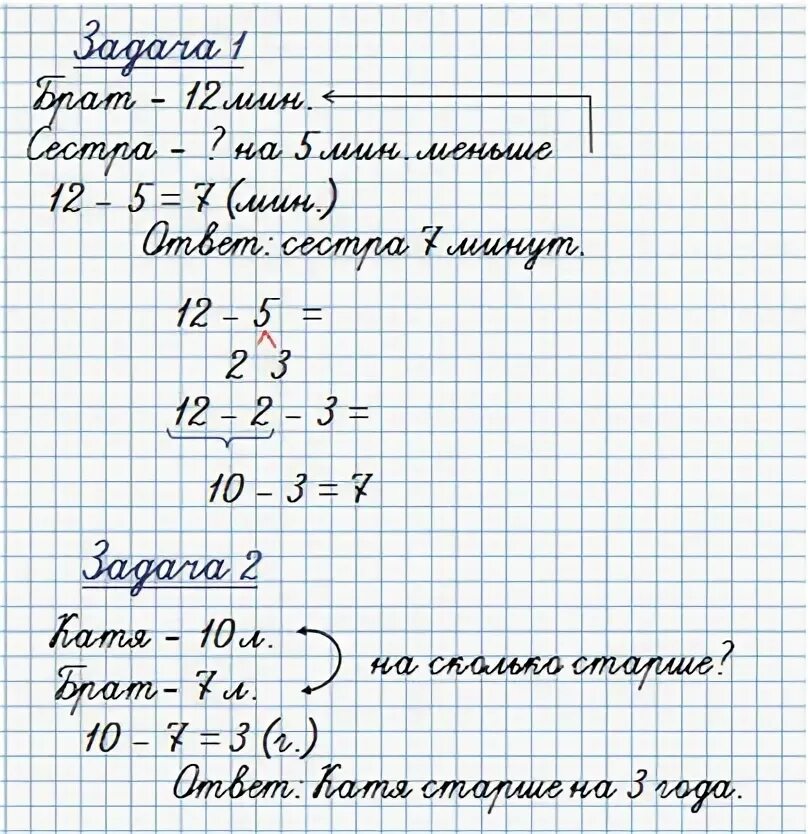 Задача 1
Брат - 12 мин.
Сестра - ? на 5 мин. меньше
12 - 5 = 7 (мин.)
Ответ: сестра 7 минут.
12 - 5 =
2 3
12 - 2 - 3 =
10 - 3 = 7
Задача 2
Катя - 10 л.
на сколько старше?
Брат - 7 л.
10 - 7 = 3 (г.)
Ответ: Катя старше на 3 года.